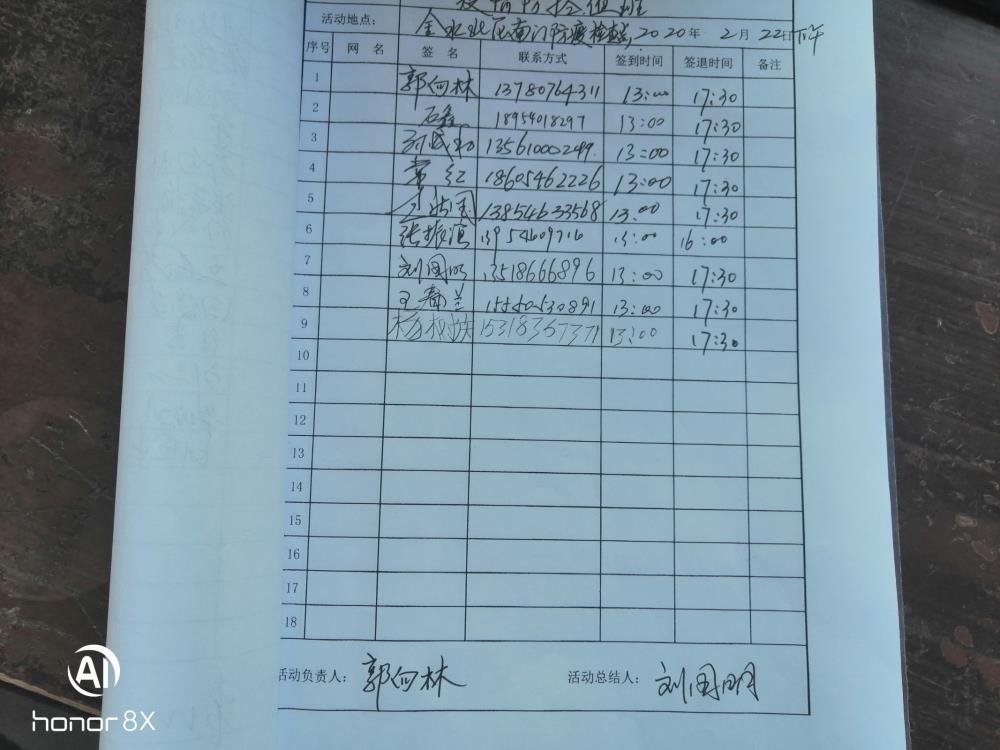 疫情防控值班
活动地点: 金水北区南门防疫检查 2020年 2月 22日下午
序号 网 名 签 名 联系方式 签到时间 签退时间 备注
1 郭向林 13780764311 13:00 17:30
2 石鑫 18954018297 13:00 17:30
3 13561000249 13:00 17:30
4 常红 18605462226 13:00 17:30
5 13854633568 13:00 17:30
6 张振滨 13954609716 13:00 16:00
7 刘国明 13518666896 13:00 17:30
8 王春兰 15550530891 13:00 17:30
9 15318367371 13:00 17:30
10
11
12
13
14
15
16
17
18
活动负责人: 郭向林 活动总结人: 刘国明
AI
honor 8X